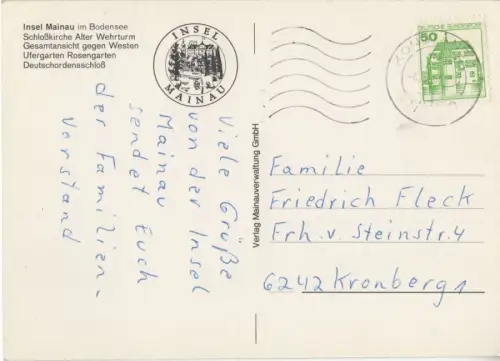 Insel Mainau im Bodensee
Schloßkirche Alter Wehrturm
Gesamtansicht gegen Westen
Ufergarten Rosengarten
Deutschordensschloß
INSEL
MAINAU
50
DEUTSCHE BUNDESPOST
Viele Grüße
von der Insel
Mainau
sendet Euch
der Familien-
vorstand
Verlag Mainauverwaltung GmbH
Familie
Friedrich Fleck
Frh. v. Steinstr. 4
6242 Kronberg 1